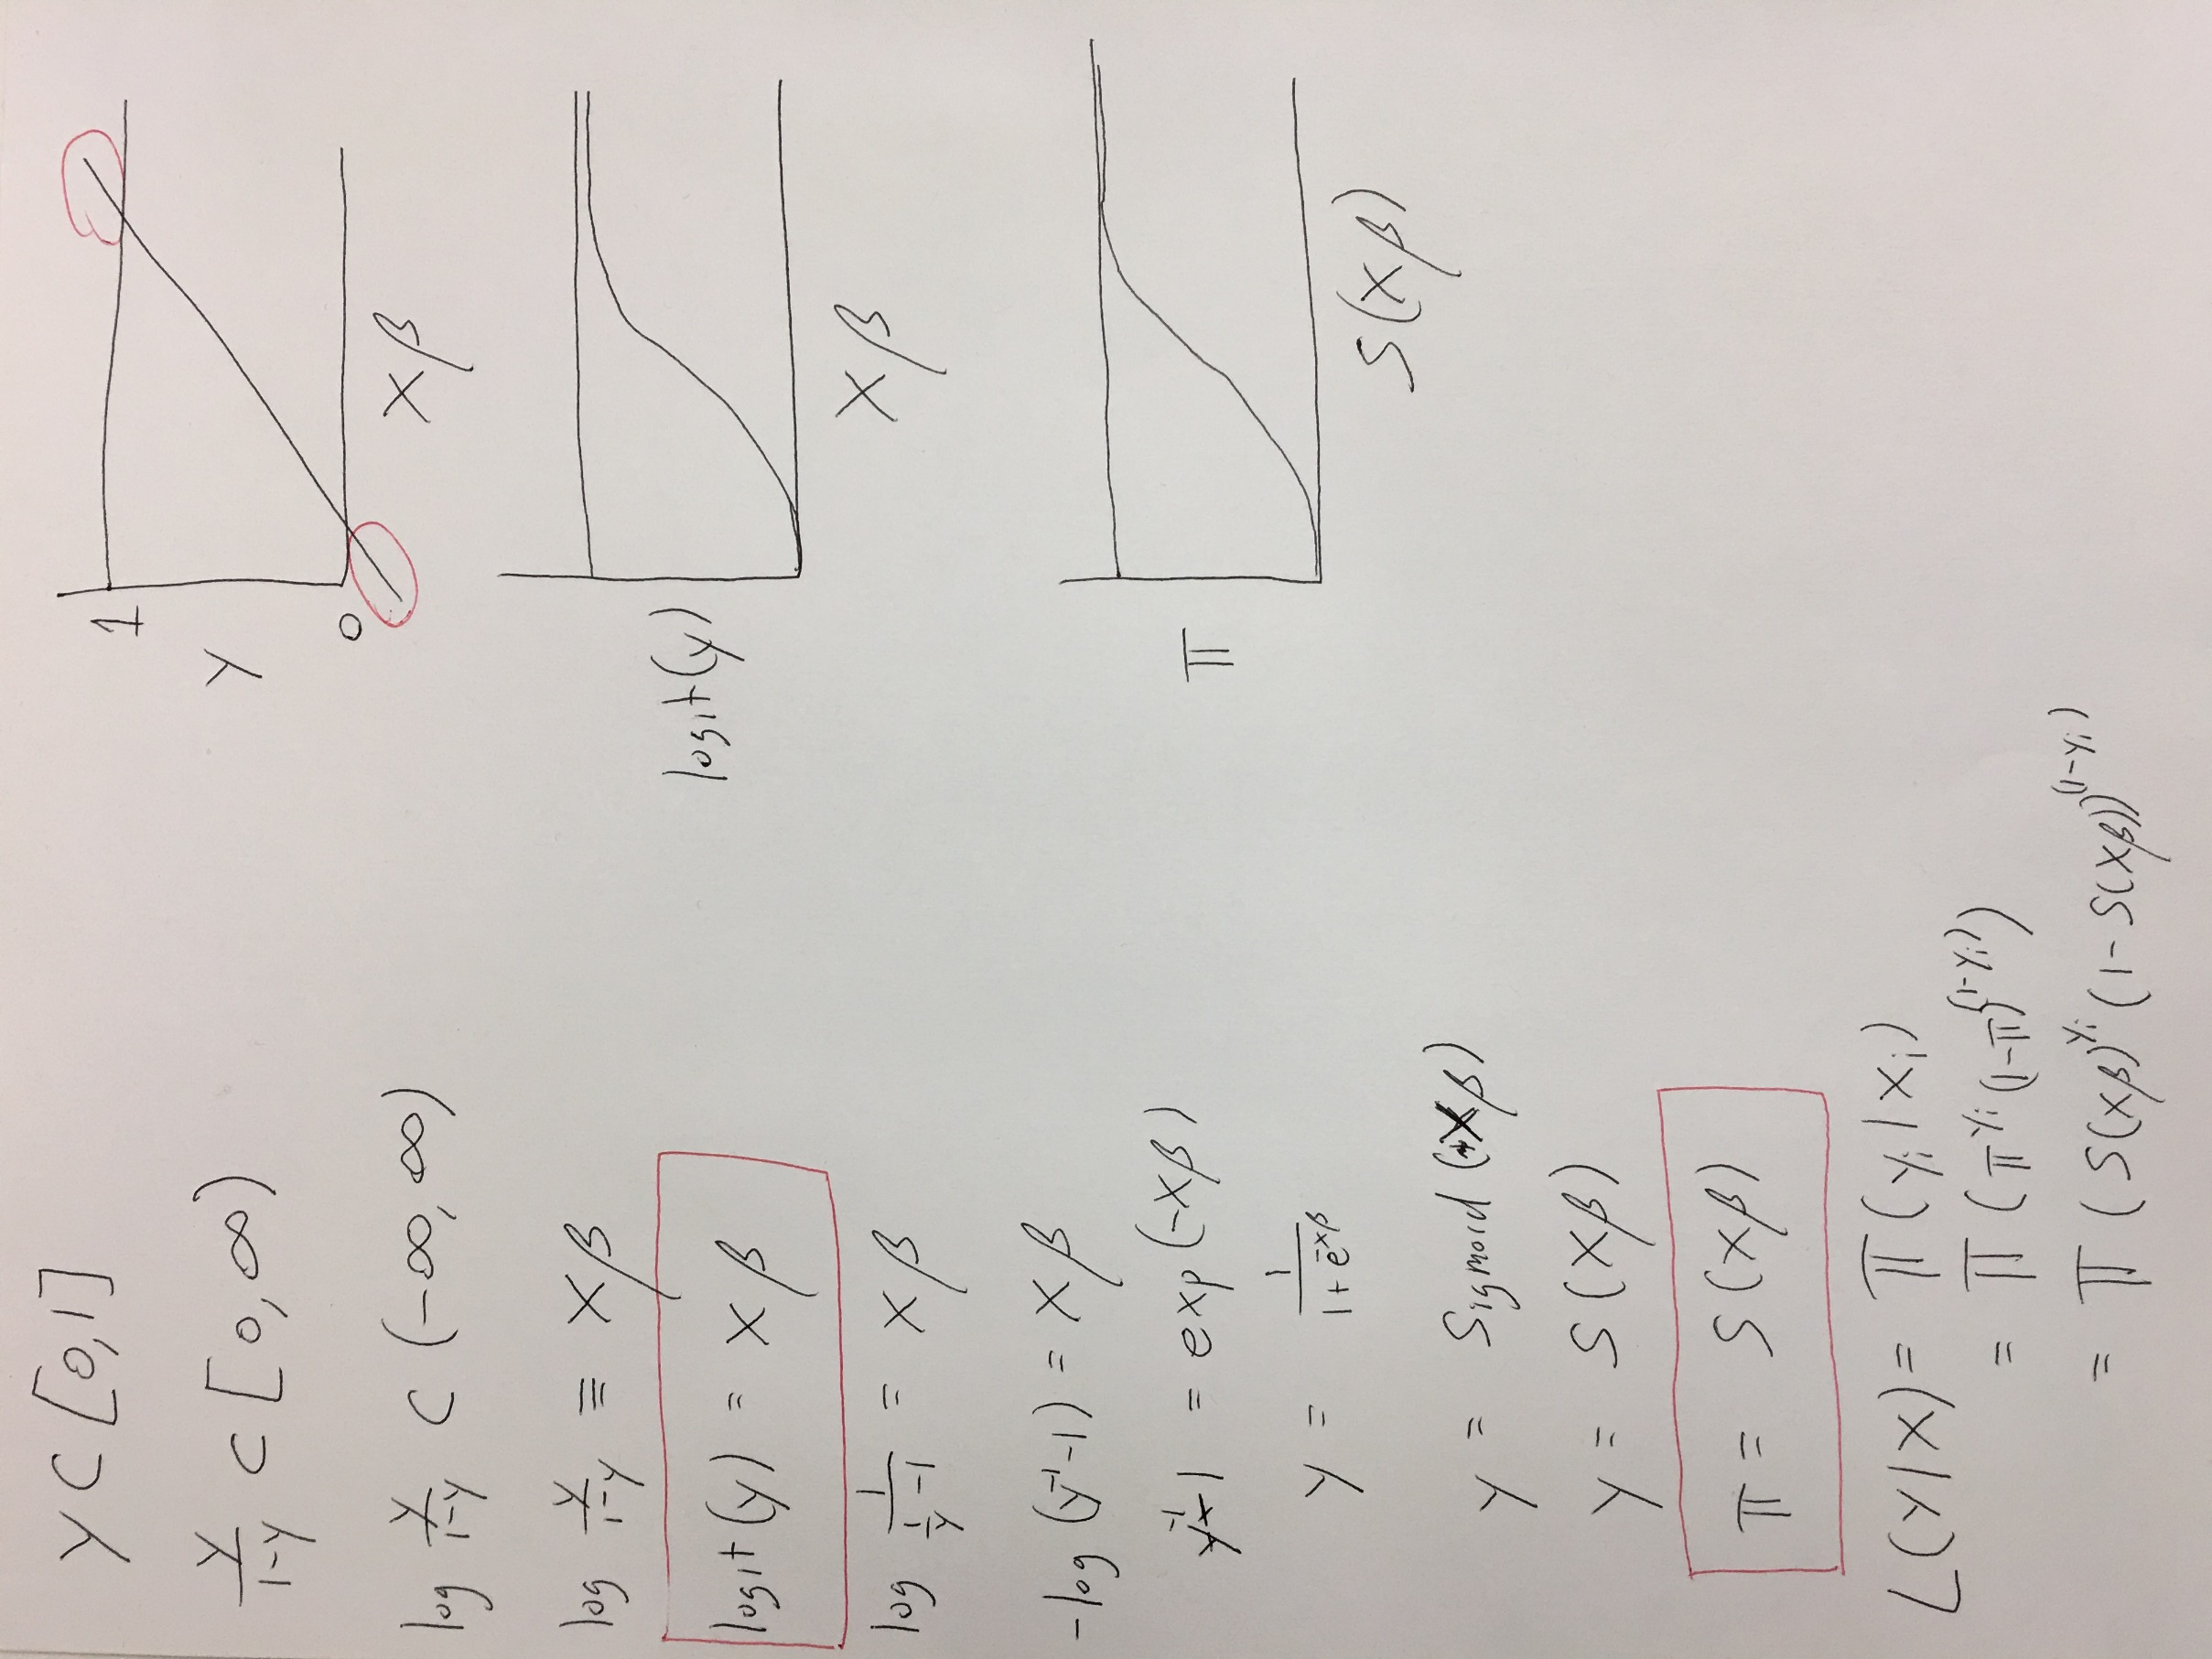 y ⊂ [0,1]
y/1-y ⊂ [0,∞)
log y/1-y ⊂ (-∞,∞)
log y/1-y ≡ Xβ
logit(y) = Xβ
log 1/(1/y -1) = Xβ
-log(y⁻¹-1) = Xβ
y⁻¹-1 = exp(-Xβ)
y = 1/1+e^-Xβ
y = Sigmoid(Xβ)
y = S(Xβ)
π = S(Xβ)
L(Y|X) = Π(yᵢ|xᵢ)
= Π(π^yᵢ(1-π)^(1-yᵢ))
= Π(S(Xβ)^yᵢ(1-S(Xβ))^(1-yᵢ)
1
Y
0
Xβ
logit(y)
Xβ
π
S(Xβ)